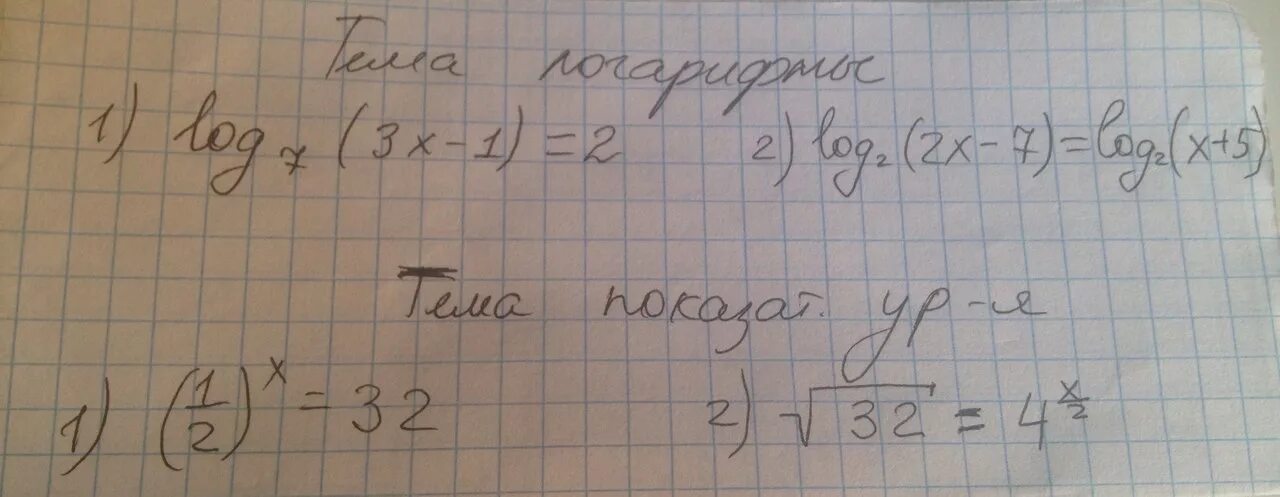 Тема логарифмы
1) log₇ (3x-1) = 2 2) log₂ (2x-7) = log₂ (x+5)
Тема показат. ур-я
1) (1/2)^x = 32 2) √32 = 4^(x/2)